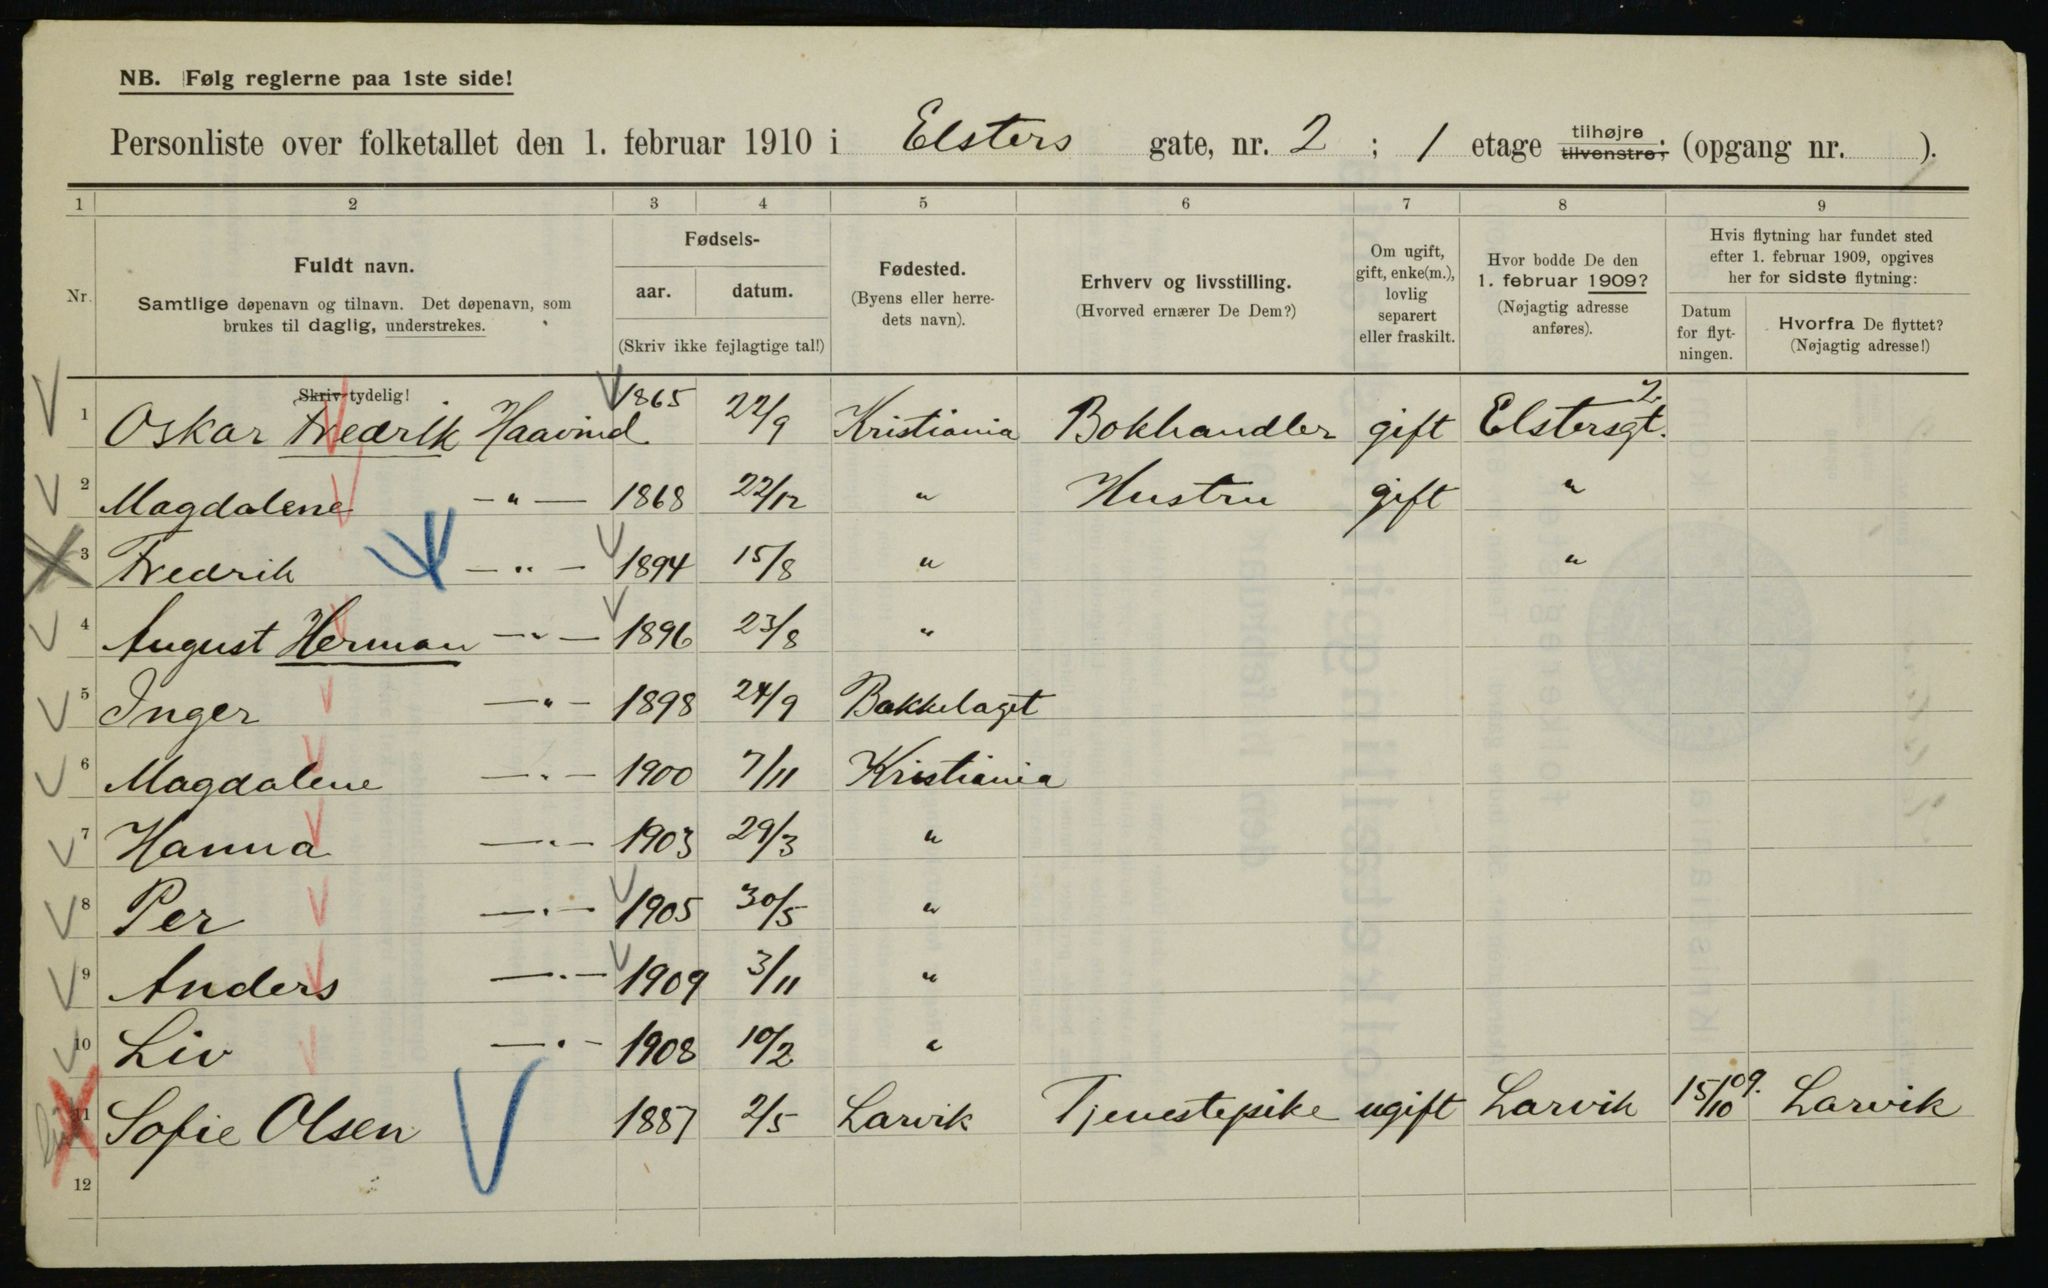 NB. Følg reglerne paa 1ste side!
Personliste over folketallet den 1. februar 1910 i Elsters gate, nr. 2 ; 1 etage tilhøjre tilvenstre; (opgang nr. ).
1 2 3 4 5 6 7 8 9
Nr. Fuldt navn. Samtlige døpenavn og tilnavn. Det døpenavn, som brukes til daglig, understrekes.
Fødsels- aar. datum. (Skriv ikke fejlagtige tal!)
Fødested. (Byens eller herredets navn).
Erhverv og livsstilling. (Hvorved ernærer De Dem?)
Om ugift, gift, enke(m.), lovlig separert eller fraskilt.
Hvor bodde De den 1. februar 1909? (Nøjagtig adresse anføres).
Hvis flytning har fundet sted efter 1. februar 1909, opgives her for sidste flytning:
Datum for flytningen. Hvorfra De flyttet? (Nøjagtig adresse!)
Skriv tydelig!
1 Oskar Fredrik Haavind 1865 22/9 Kristiania Bokhandler gift Elstersgt. 2
2 Magdalene —"— 1868 22/12 " Hustru gift "
3 Fredrik —"— 1894 15/8 " "
4 August Herman —"— 1896 23/8 "
5 Inger —"— 1898 24/9 Bakkelaget
6 Magdalene —"— 1900 7/11 Kristiania
7 Hanna —"— 1903 29/3 "
8 Per —"— 1905 30/5 "
9 Anders —"— 1909 3/11 "
10 Liv —"— 1908 10/2 "
11 Sofie Olsen 1887 2/5 Larvik Tjenestepike ugift Larvik 15/10 09. Larvik
12